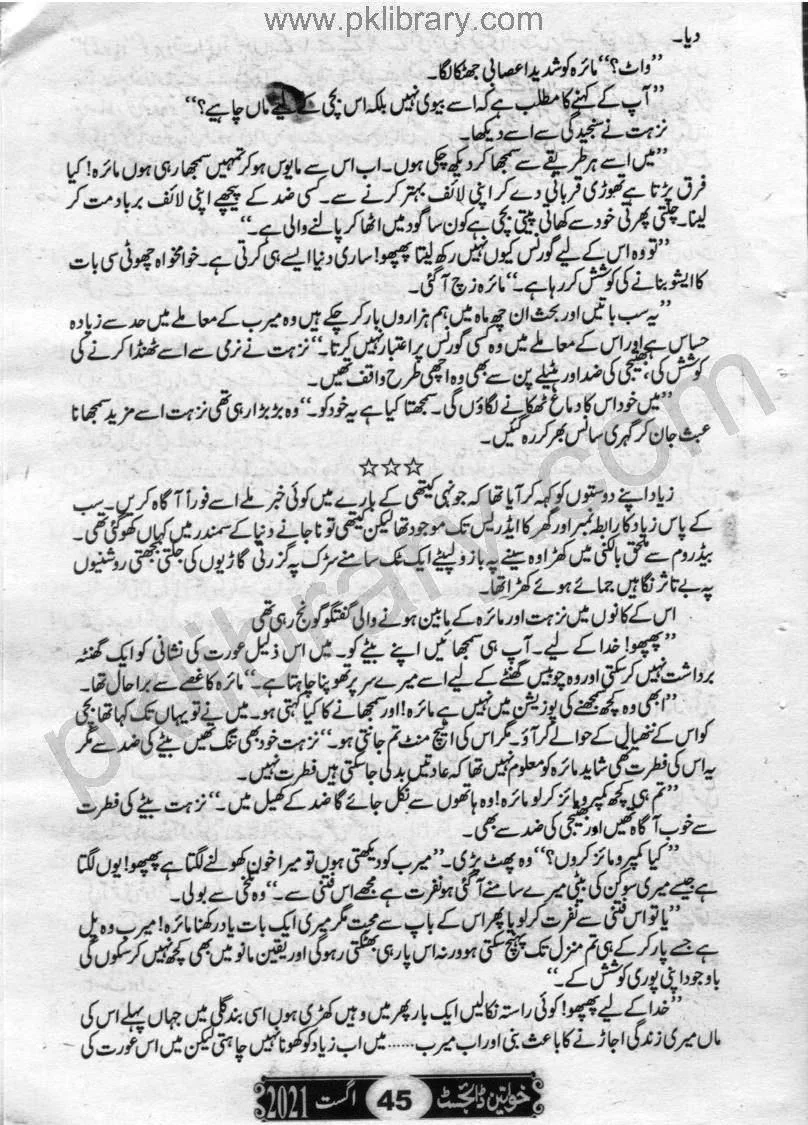 www.pklibrary.com
دیا۔
”واٹ؟“ مائرہ کو شدید اعصابی جھٹکا لگا۔
”آپ کے کہنے کا مطلب ہے کہ اسے بیوی نہیں بلکہ اس بچی کے لیے ماں چاہیے؟“
نزہت نے سنجیدگی سے اسے دیکھا۔
”میں اسے ہر طریقے سے سمجھا کر دیکھ چکی ہوں۔ اب اس سے مایوس ہو کر تمہیں سمجھا رہی ہوں مائرہ! کیا
فرق پڑتا ہے تھوڑی قربانی دے کر اپنی لائف بہتر کرنے سے۔ کسی ضد کے پیچھے اپنی لائف برباد مت کر
لینا۔ چلتی پھرتی خود سے کھاتی پیتی بچی ہے کون سا گود میں اٹھا کر پالنے والی ہے۔“
”تو وہ اس کے لیے گورنس کیوں نہیں رکھ لیتا پھپھو! ساری دنیا ایسے ہی کرتی ہے۔ خوامخواہ چھوٹی سی بات
کا ایشو بنانے کی کوشش کر رہا ہے۔“ مائرہ زچ آ گئی۔
”یہ سب باتیں اور بحث ان چھ ماہ میں ہم ہزاروں بار کر چکے ہیں وہ میرب کے معاملے میں حد سے زیادہ
حساس ہے اور اس کے معاملے میں وہ کسی گورنس پر اعتبار نہیں کرتا۔“ نزہت نے نرمی سے اسے ٹھنڈا کرنے کی
کوشش کی، بھتیجی کی ضد اور ہٹیلے پن سے بھی وہ اچھی طرح واقف تھیں۔
”میں خود اس کا دماغ ٹھکانے لگاؤں گی۔ سمجھتا کیا ہے یہ خود کو۔“ وہ بڑبڑا رہی تھی نزہت اسے مزید سمجھانا
عبث جان کر گہری سانس بھر کر رہ گئیں۔
☆☆☆
زیاد اپنے دوستوں کو کہہ کر آیا تھا کہ جونہی کیتھی کے بارے میں کوئی خبر ملے اسے فوراً آگاہ کریں۔ سب
کے پاس زیاد کا رابطہ نمبر اور گھر کا ایڈریس تک موجود تھا لیکن کیتھی تو نا جانے دنیا کے سمندر میں کہاں کھو گئی تھی۔
بیڈ روم سے ملحق بالکنی میں کھڑا وہ سینے پہ بازو لپیٹے ایک ٹک سامنے سڑک پہ گزرتی گاڑیوں کی جلتی بجھتی روشنیوں
پہ بے تاثر نگاہیں جمائے ہوئے کھڑا تھا۔
اس کے کانوں میں نزہت اور مائرہ کے مابین ہونے والی گفتگو گونج رہی تھی
”پھپھو! خدا کے لیے۔ آپ ہی سمجھائیں اپنے بیٹے کو۔ میں اس ذلیل عورت کی نشانی کو ایک گھنٹہ
برداشت نہیں کر سکتی اور وہ چوبیس گھنٹے کے لیے اسے میرے سر پر تھوپنا چاہتا ہے۔“ مائرہ کا غصے سے برا حال تھا۔
”ابھی وہ کچھ سمجھنے کی پوزیشن میں نہیں ہے مائرہ! اور سمجھانے کا کیا کہتی ہو۔ میں نے تو یہاں تک کہا تھا بچی
کو اس کے ننھیال کے حوالے کر آؤ۔ مگر اس کی اٹیچ منٹ تم جانتی ہو۔“ نزہت خود بھی تنگ تھیں بیٹے کی ضد سے مگر
یہ اس کی فطرت تھی شاید مائرہ کو معلوم نہیں تھا کہ عادتیں بدلی جا سکتی ہیں فطرت نہیں۔
”تم ہی کچھ کمپرومائز کر لو مائرہ! وہ ہاتھوں سے نکل جائے گا ضد کے کھیل میں۔“ نزہت بیٹے کی فطرت
سے خوب آگاہ تھیں اور بھتیجی کی ضد سے بھی۔
”کیا کمپرومائز کروں؟“ وہ پھٹ پڑی۔ ”میرب کو دیکھتی ہوں تو میرا خون کھولنے لگتا ہے پھپھو! یوں لگتا
ہے جیسے میری سوکن کی بیٹی میرے سامنے آ گئی ہو نفرت ہے مجھے اس فتنی سے۔“ وہ تلخی سے بولی۔
”یا تو اس فتنی سے نفرت کر لو یا پھر اس کے باپ سے محبت مگر میری ایک بات یاد رکھنا مائرہ! میرب وہ پل
ہے جسے پار کر کے ہی تم منزل تک پہنچ سکتی ہو ورنہ اس پار ہی بھٹکتی رہو گی اور یقین مانو میں بھی کچھ نہیں کر سکوں گی
باوجود اپنی پوری کوشش کے۔“
”خدا کے لیے پھپھو! کوئی راستہ نکالیں ایک بار پھر میں وہیں کھڑی ہوں اسی بند گلی میں جہاں پہلے اس کی
ماں میری زندگی اجاڑنے کا باعث بنی اور اب میرب...... میں اب زیاد کو کھونا نہیں چاہتی لیکن میں اس عورت کی
خواتین ڈائجسٹ 45 اگست 2021
pklibrary.com